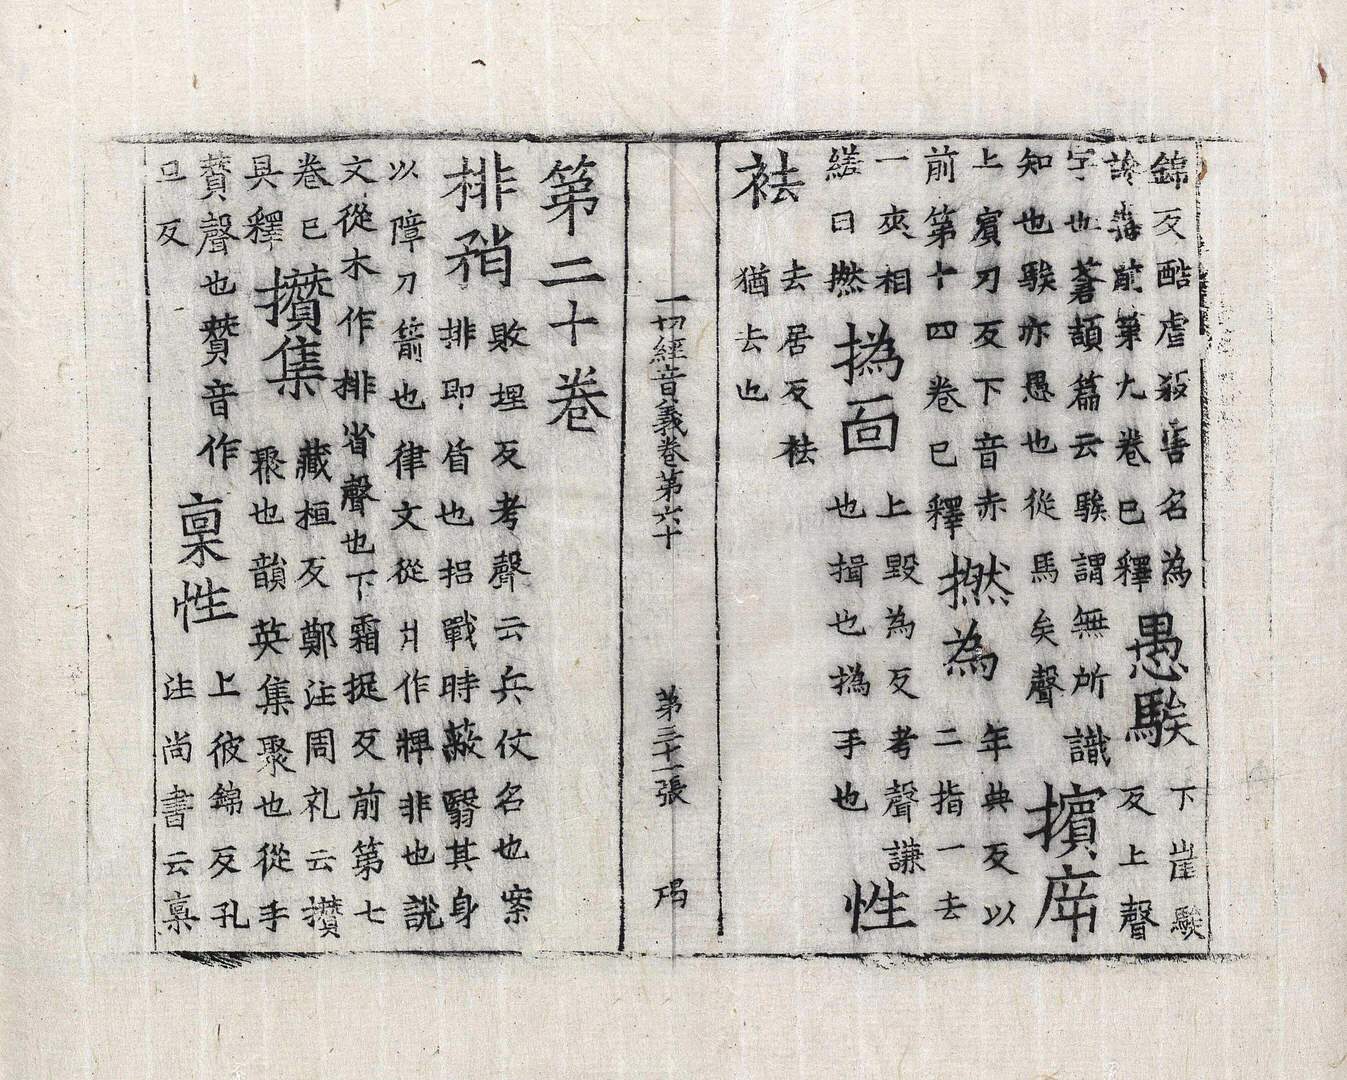 錦反酷虐殺害名為
毒前第九卷已釋
愚騃
下崖騃
反上聲
字也蒼頡篇云騃謂無所識
知也騃亦愚也從馬矣聲
擯庌
上賓刃反下音赤
前第十四卷已釋
撚為
年典反以
二指一去
一夾相
縒曰撚
撝面
上毀為反考聲謙
也揖也撝手也
性
袪
去居反袪
猶去也
一切經音義卷第六十 第三十一張
第二十卷
排矟
敗埋反考聲云兵仗名也案
排即盾也招戰時蔽翳其身
以障刀箭也律文從爿作牌非也說
文從木作排省聲也下霜捉反前第七
卷已
具釋
攢集
藏桓反鄭注周礼云攢
聚也韻英集聚也從手
贊聲也贊音作
旦反
稟性
上彼錦反孔
注尚書云稟